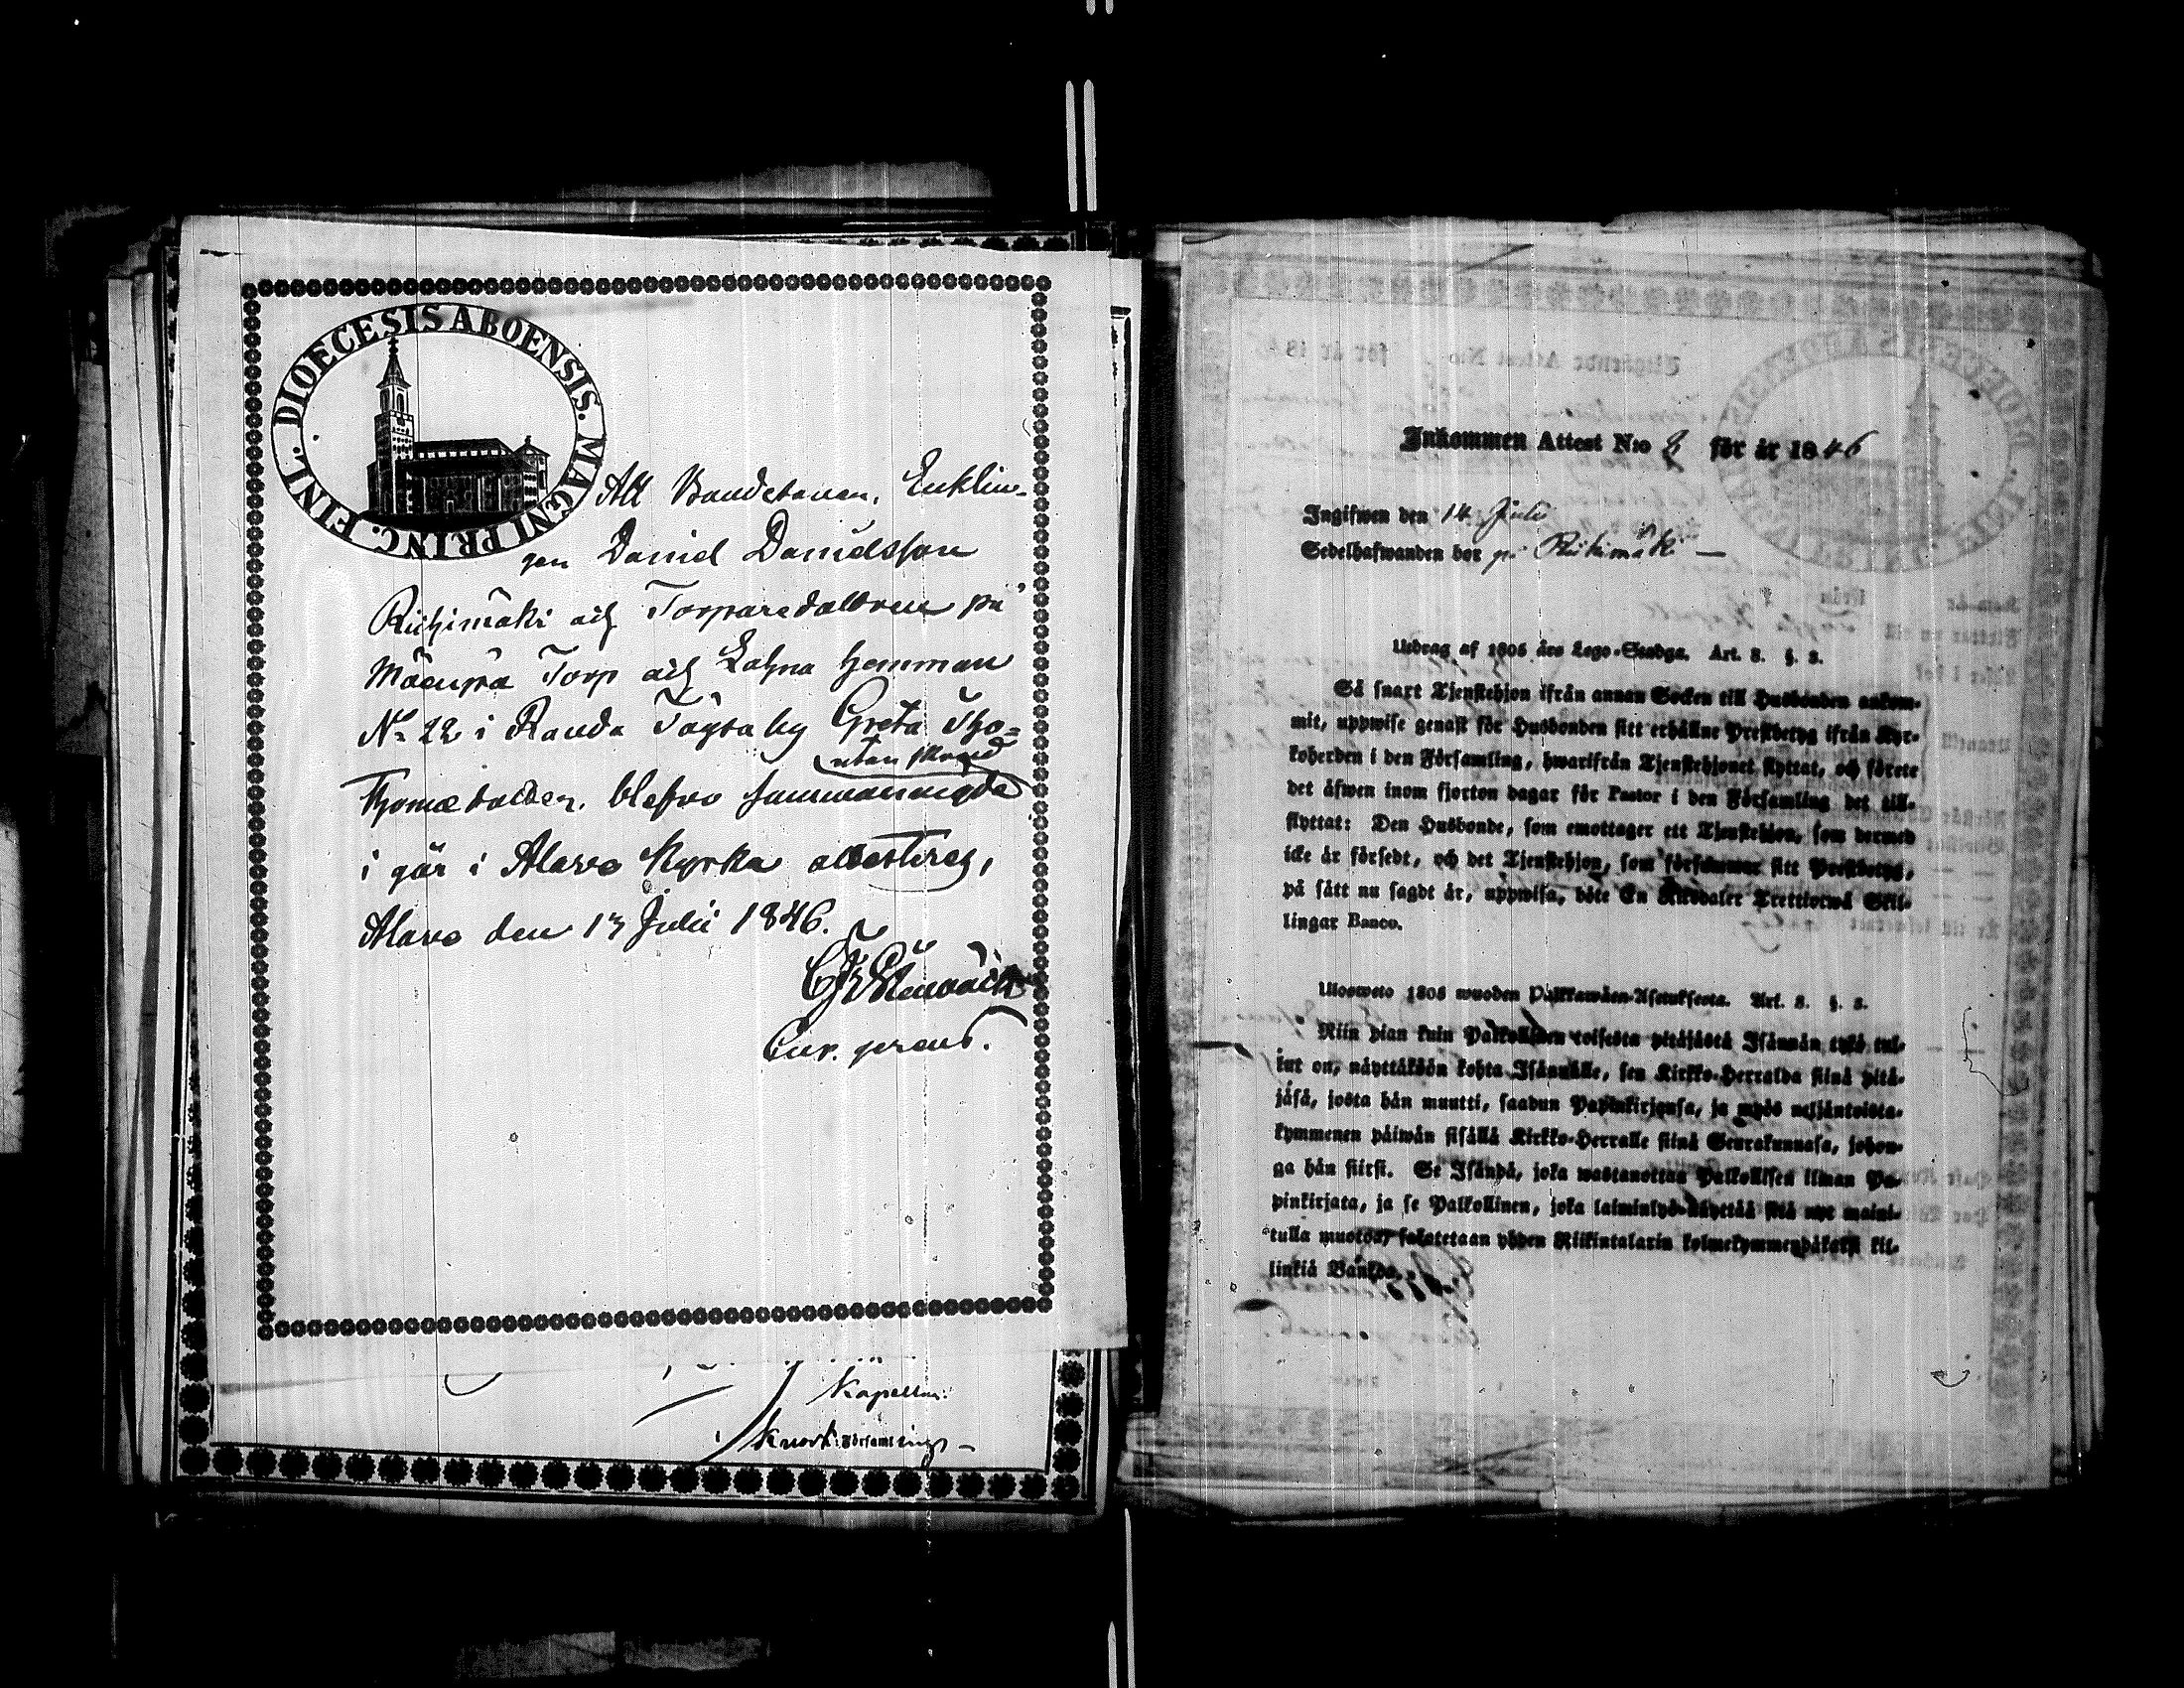 DIOECESIS ABOENSIS. MAGNI PRINC. FINL.
Att Bondesonen, Enklin-
gen Daniel Danielsson
Riihimäki och Torparedottren på
Mäenpä Torp och Lahna hemman
No 22 i Töysä by Greta Tho-
utan skrud
Thomædotter, blefvo sammanvigde
i går i Alavo Kyrka attesteras,
Alavo den 13 Julii 1846.
Cur. gerens.
Kapellns
Församlings-
Inkommen Attest N:o 8 för år 1846
Ingifwen den 14 Juli
Sedelhafwanden bor på Riihimäki —
Utdrag af 1805 års Lego-Stadga. Art. 8. §. 8.
Så snart Tjenstehjon ifrån annan Socken till Husbonden ankom-
mit, uppwise genast för Husbonden sitt erhållne Prestbetyg ifrån Kyr-
koherden i den Församling, hwarifrån Tjenstehjonet flyttat, och förete
det äfwen inom fjorton dagar för Pastor i den Församling det till-
flyttat: Den Husbonde, som emottager ett Tjenstehjon, som dermed
icke är försedt, och det Tjenstehjon, som försummar sitt Prestbetyg,
på sätt nu sagdt är, uppwisa, böte En Riksdaler Trettiotwå Skil-
lingar Banco.
Ulosweto 1805 wuoden Palkkawäen-Asetuksesta. Art. 8. §. 8.
Niin pian kuin Palkollinen toisesta pitäjästä Isännän tykö tul-
lut on, näyttäköön kohta Isännälle, sen Kirkko-Herralda siinä pitä-
jäsä, josta hän muutti, saadun Papinkirjansa, ja myös neljäntoista-
kymmenen päiwän sisällä Kirkko-Herralle siinä Seurakunnasa, johon-
ga hän siirsi. Se Isändä, joka wastanottaa Palkollisen ilman Pa-
pinkirjata, ja se Palkollinen, joka laiminlyö näyttää sitä nyt maini-
tulla muotoa, sakatetaan yhden Riikintalarin kolmekymmendäkaksi kil-
linkiä Bankoa.